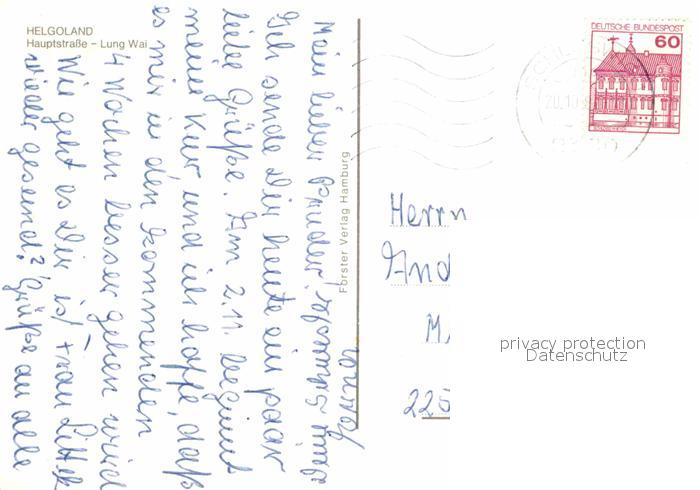 HELGOLAND
Hauptstraße – Lung Wai
Mein lieber Bruder!
Ich sende Dir heute ein paar
liebe Grüße. Am 2.11. beginnt
meine Kur und ich hoffe, daß
es mir in den kommenden
4 Wochen besser gehen wird
Wie geht es Dir ist Frau
wieder gesund? Grüße an alle
Förster Verlag Hamburg
DEUTSCHE BUNDESPOST
60
20.10
Herrn
And
M.
225
privacy protection
Datenschutz